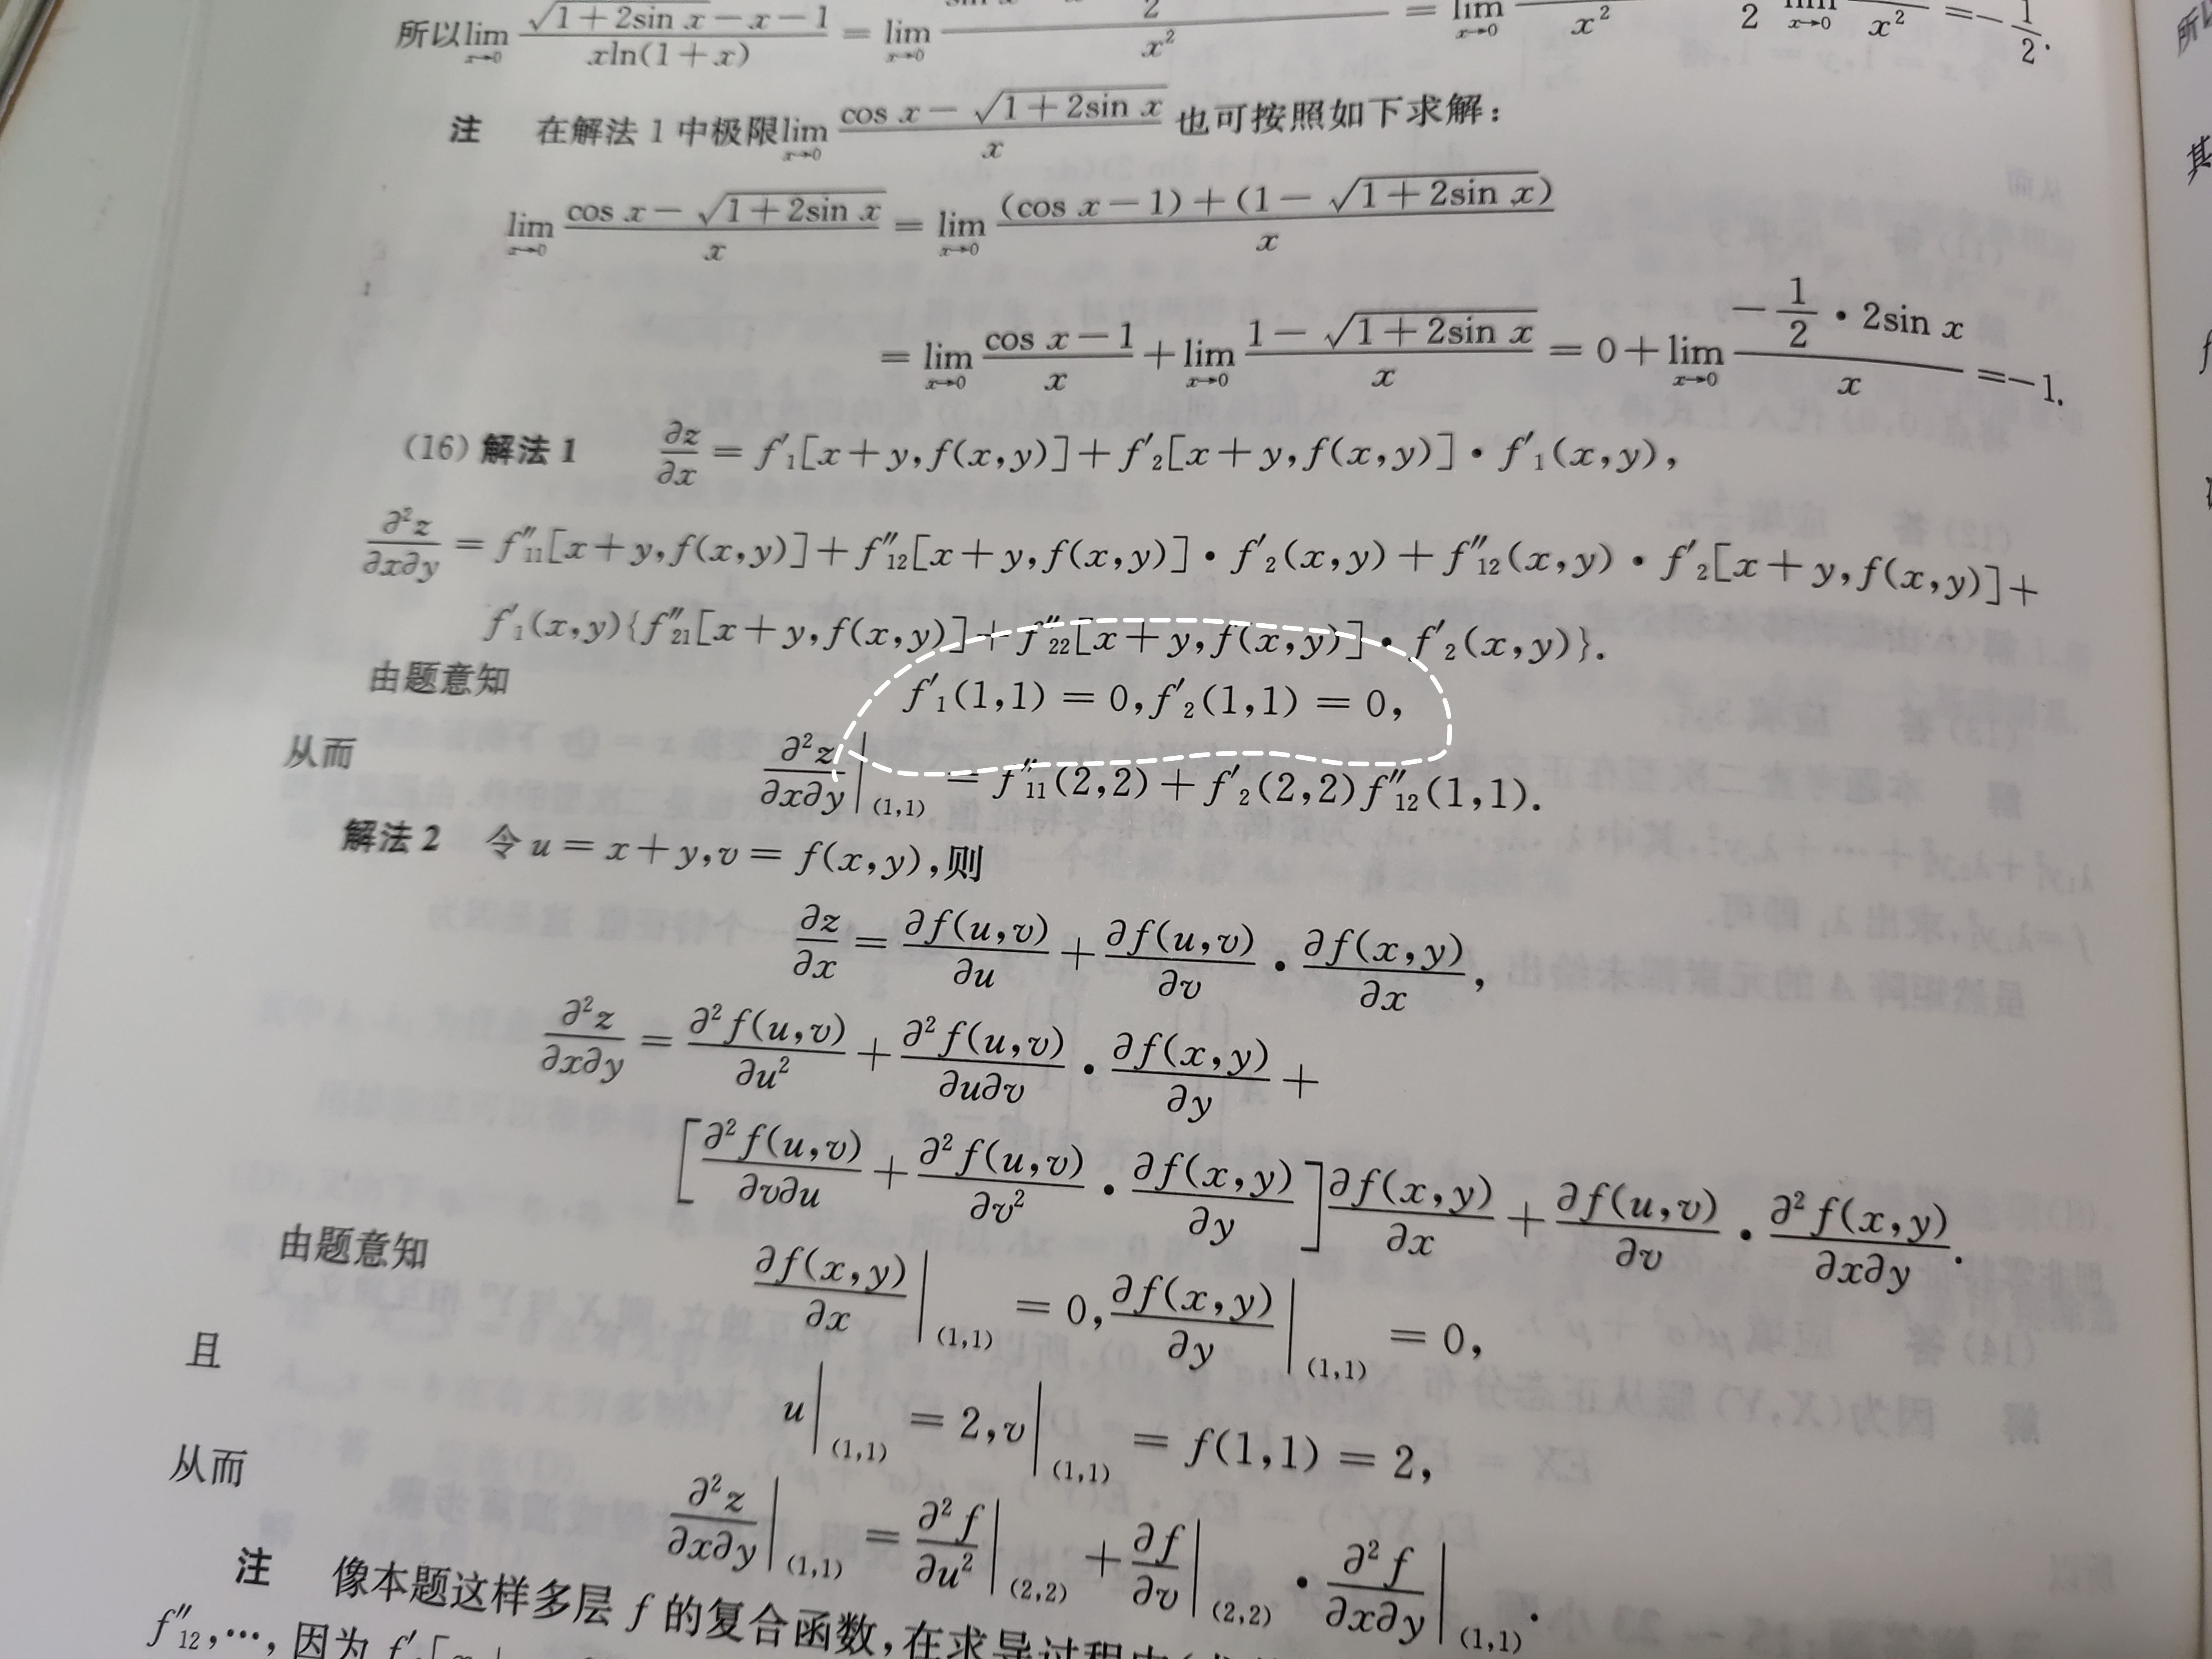 所以lim x→0 (√(1+2sin x)−x−1)/(xln(1+x)) = lim x→0 2/x² = lim x→0 x² 2 lim x→0 x² =−1/2.
注 在解法 1 中极限lim x→0 (cos x−√(1+2sin x))/x 也可按照如下求解：
lim x→0 (cos x−√(1+2sin x))/x = lim x→0 ((cos x−1)+(1−√(1+2sin x)))/x
= lim x→0 (cos x−1)/x + lim x→0 (1−√(1+2sin x))/x = 0+lim x→0 (−1/2 • 2sin x)/x =−1.
(16) 解法 1 ∂z/∂x = f′₁[x+y,f(x,y)]+f′₂[x+y,f(x,y)]•f′₁(x,y),
∂²z/∂x∂y = f″₁₁[x+y,f(x,y)]+f″₁₂[x+y,f(x,y)]•f′₂(x,y)+f″₁₂(x,y)•f′₂[x+y,f(x,y)]+
f′₁(x,y){f″₂₁[x+y,f(x,y)]+f″₂₂[x+y,f(x,y)]•f′₂(x,y)}.
由题意知 f′₁(1,1)=0,f′₂(1,1)=0,
从而 ∂²z/∂x∂y|(1,1) = f″₁₁(2,2)+f′₂(2,2)f″₁₂(1,1).
解法 2 令 u=x+y,v=f(x,y),则
∂z/∂x = ∂f(u,v)/∂u + ∂f(u,v)/∂v • ∂f(x,y)/∂x,
∂²z/∂x∂y = ∂²f(u,v)/∂u² + ∂²f(u,v)/∂u∂v • ∂f(x,y)/∂y +
[∂²f(u,v)/∂v∂u + ∂²f(u,v)/∂v² • ∂f(x,y)/∂y]∂f(x,y)/∂x + ∂f(u,v)/∂v • ∂²f(x,y)/∂x∂y.
由题意知 ∂f(x,y)/∂x|(1,1) = 0, ∂f(x,y)/∂y|(1,1) = 0,
且 u|(1,1) = 2,v|(1,1) = f(1,1) = 2,
从而 ∂²z/∂x∂y|(1,1) = ∂²f/∂u²|(2,2) + ∂f/∂v|(2,2) • ∂²f/∂x∂y|(1,1).
注 像本题这样多层 f 的复合函数,在求导过程中
f″₁₂,…,因为 f′[x
所以
其